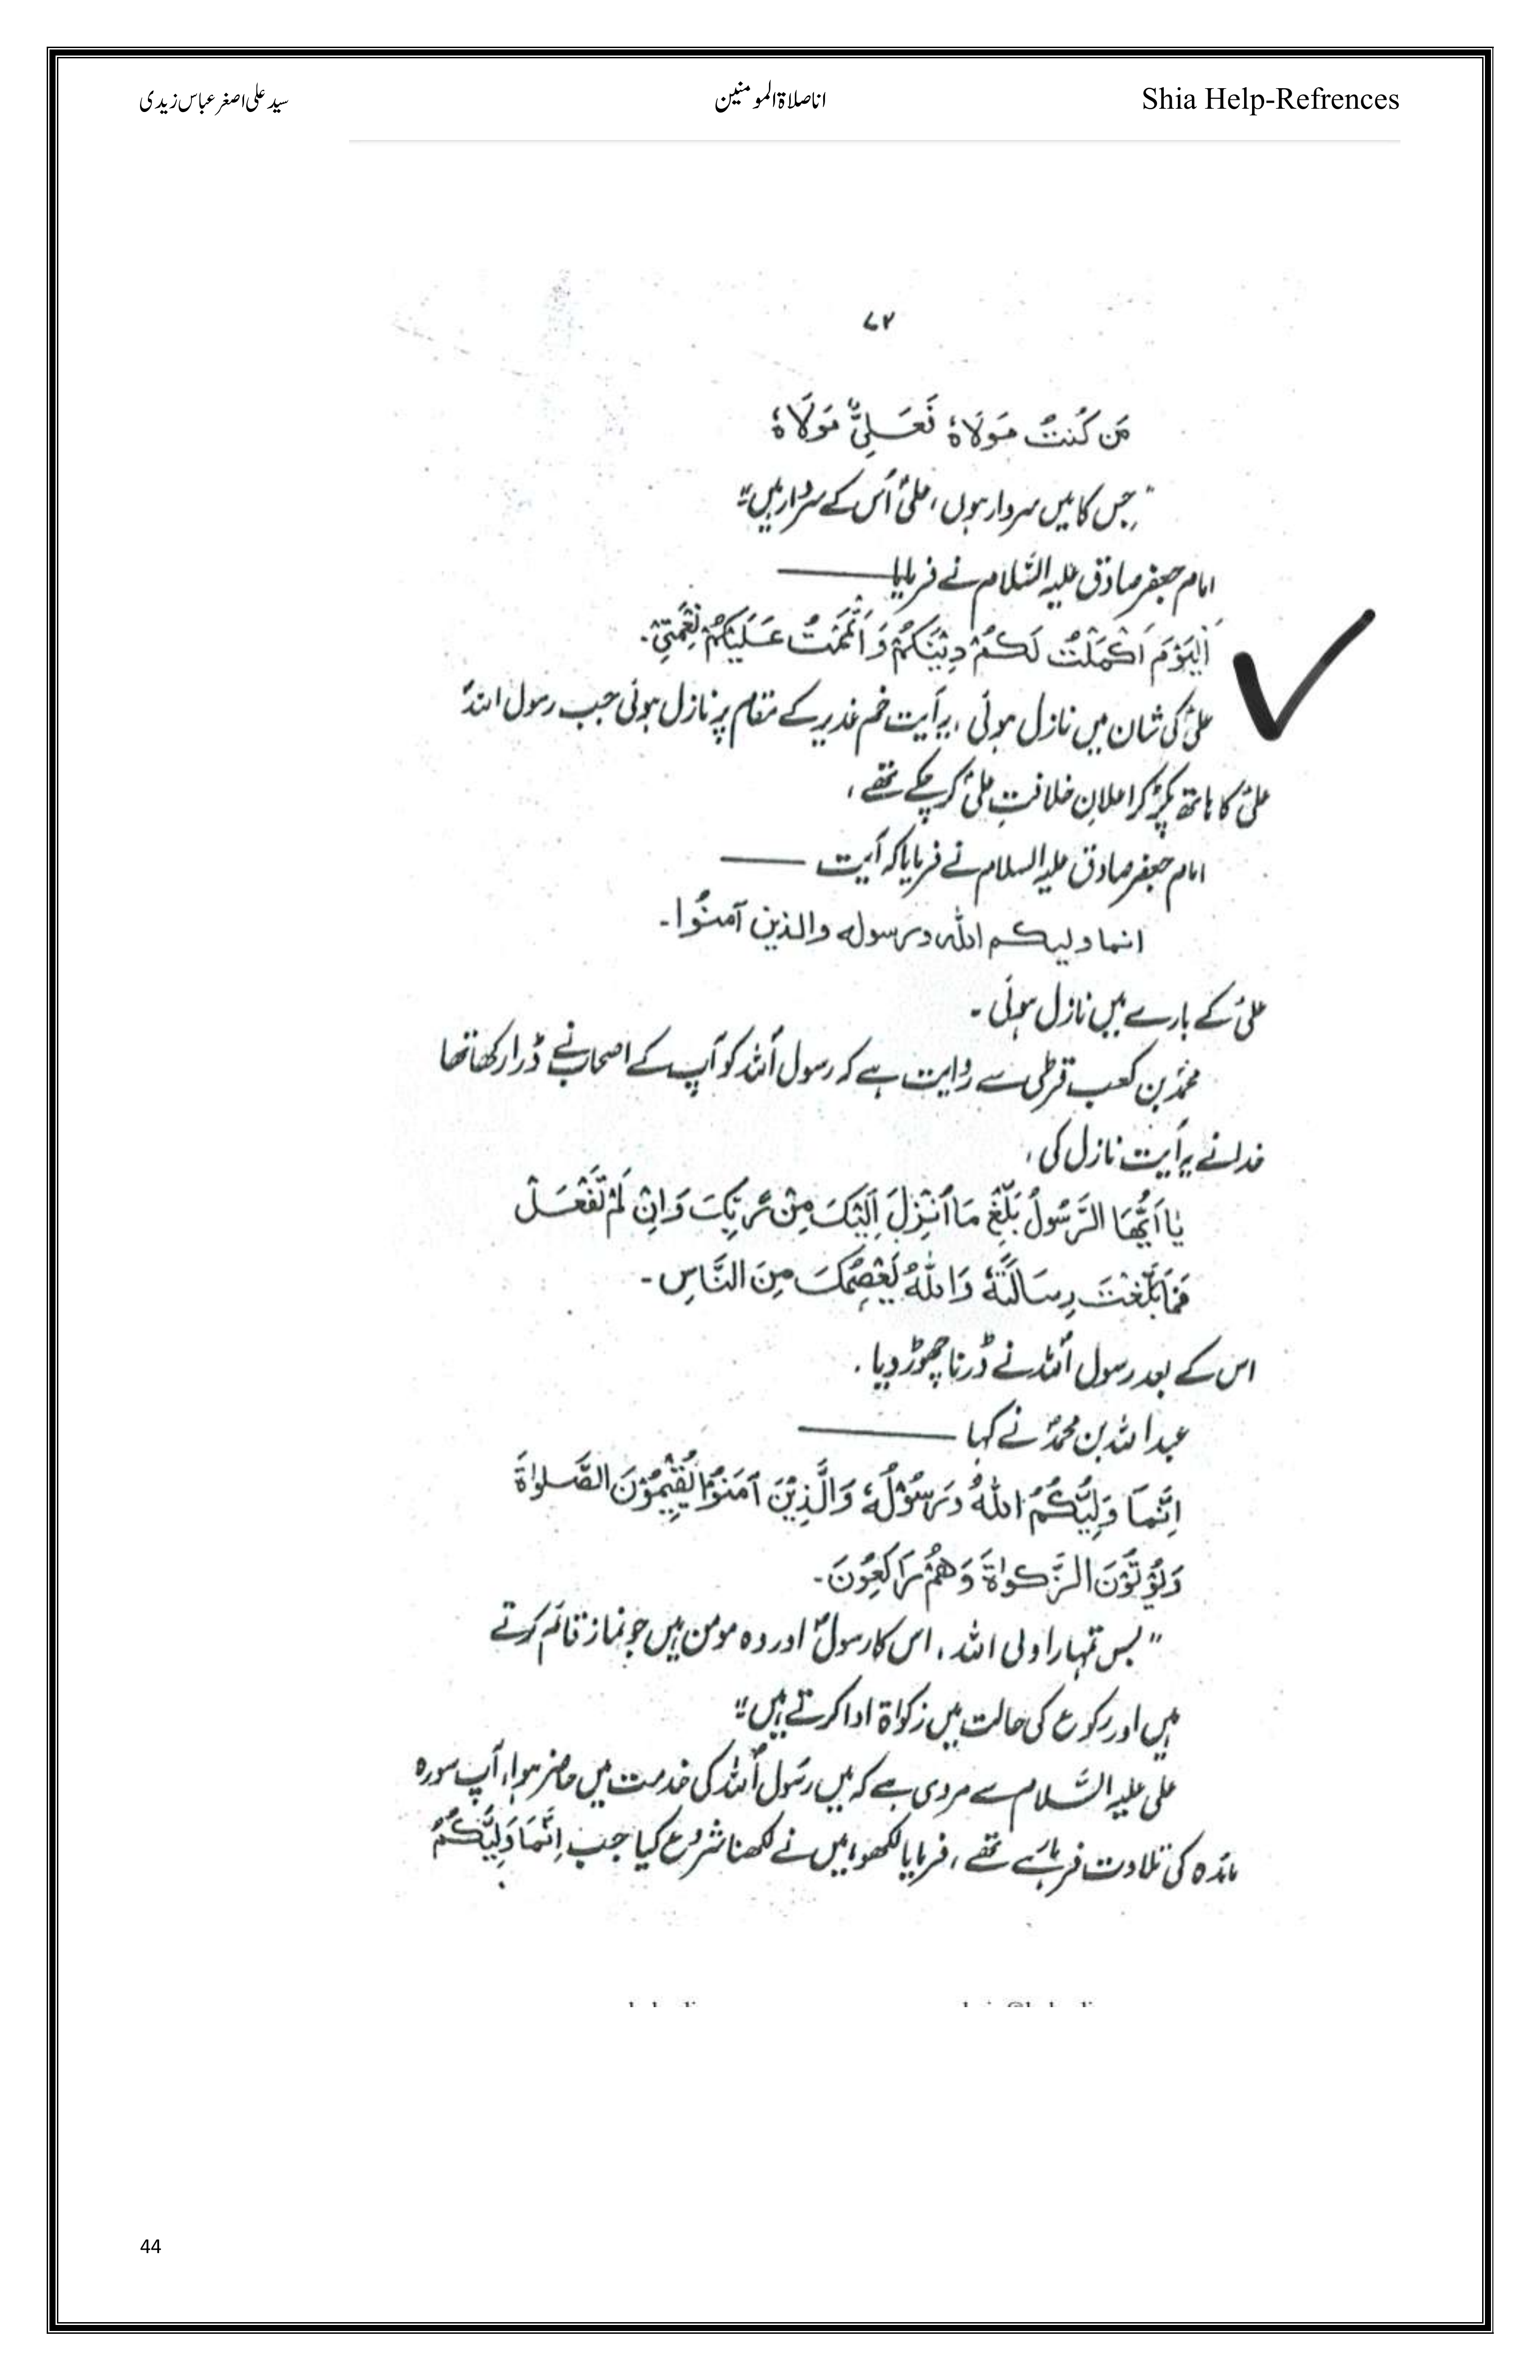 Shia Help-Refrences
انا صلاۃ المومنین
سید علی اصغر عباس زیدی
۷۲
مَن كُنتُ مَولَاهُ فَعَلِيٌّ مَولَاهُ
"جس کا میں سردار ہوں، علیؑ اُس کے سردار ہیں"
امام جعفر صادق علیہ السّلام نے فرمایا ———
اَلْيَوْمَ اَكْمَلْتُ لَكُمْ دِيْنَكُمْ وَاَتْمَمْتُ عَلَيْكُمْ نِعْمَتِيْ۔
علیؑ کی شان میں نازل ہوئی، یہ آیت خم غدیر کے مقام پر نازل ہوئی جب رسول اللہؐ
علیؑ کا ہاتھ پکڑ کر اعلانِ خلافتِ علیؑ کر چکے تھے،
امام جعفر صادق علیہ السلام نے فرمایا کہ آیت ———
انما وليكم الله ورسوله والذين آمنُوا۔
علیؑ کے بارے میں نازل ہوئی۔
محمدؐ بن کعب قرظی سے روایت ہے کہ رسول اللہؐ کو آپ کے اصحاب نے ڈرا رکھا تھا
خدا نے یہ آیت نازل کی،
يٰا اَيُّهَا الرَّسُولُ بَلِّغْ مَا اُنْزِلَ اِلَيْكَ مِنْ رَبِّكَ وَاِنْ لَمْ تَفْعَلْ
فَمَا بَلَّغْتَ رِسَالَتَهُ وَاللهُ يَعْصِمُكَ مِنَ النَّاسِ۔
اس کے بعد رسول اللہؐ نے ڈرنا چھوڑ دیا۔
عبد اللہ بن محمدؐ نے کہا ———
اِنَّمَا وَلِيُّكُمُ اللهُ وَرَسُوْلُهُ وَالَّذِيْنَ آمَنُوْا يُقِيْمُوْنَ الصَّلٰوةَ
وَيُؤْتُوْنَ الزَّكٰوةَ وَهُمْ رَاكِعُوْنَ۔
"بس تمہارا ولی اللہ، اس کا رسولؐ اور وہ مومن ہیں جو نماز قائم کرتے
ہیں اور رکوع کی حالت میں زکواۃ ادا کرتے ہیں"
علی علیہ السّلام سے مروی ہے کہ میں رسول اللہؐ کی خدمت میں حاضر ہوا، آپ سورہ
مائدہ کی تلاوت فرما رہے تھے، فرمایا لکھو، میں نے لکھنا شروع کیا جب اِنَّمَا وَلِيُّكُمُ
44